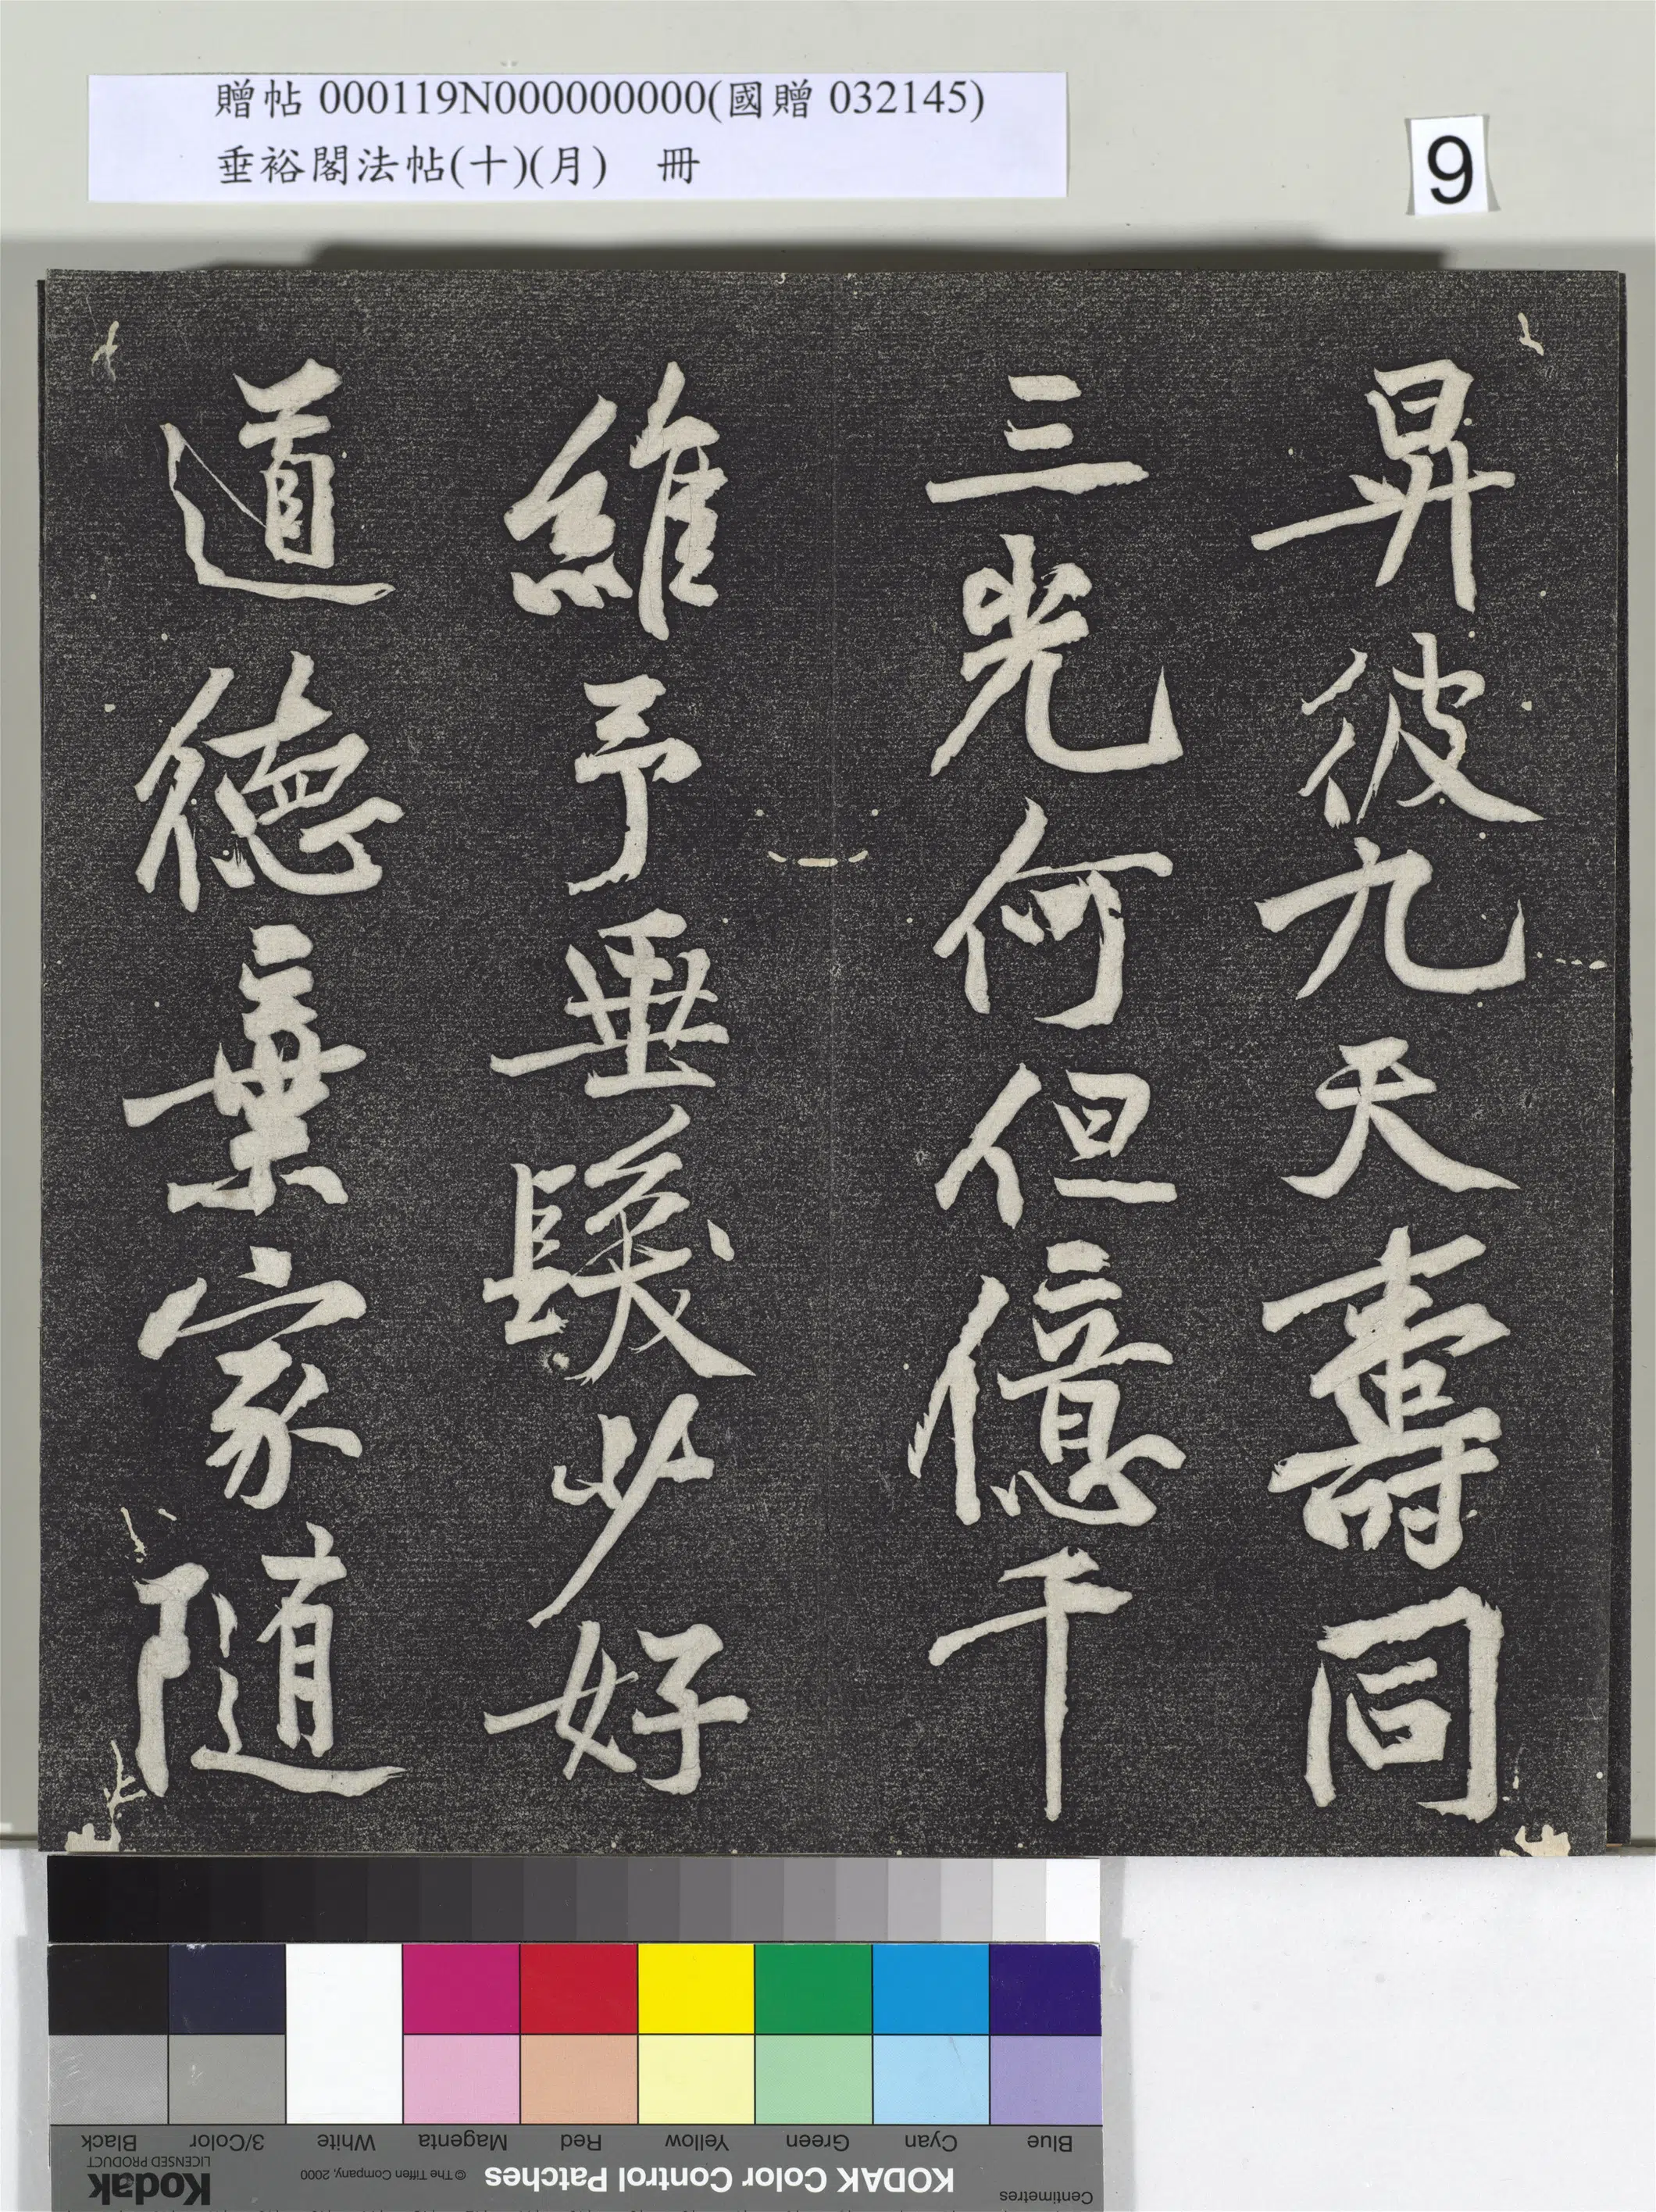 贈帖 000119N000000000(國贈 032145)
垂裕閣法帖(十)(月) 冊
9
昇彼九天壽同
三光何但億千
維予垂髮少好
道德棄家隨
Black
3/Color
White
Magenta
Red
Yellow
Green
Cyan
Blue
Kodak
LICENSED PRODUCT
© The Tiffen Company, 2000
KODAK Color Control Patches
Centimetres